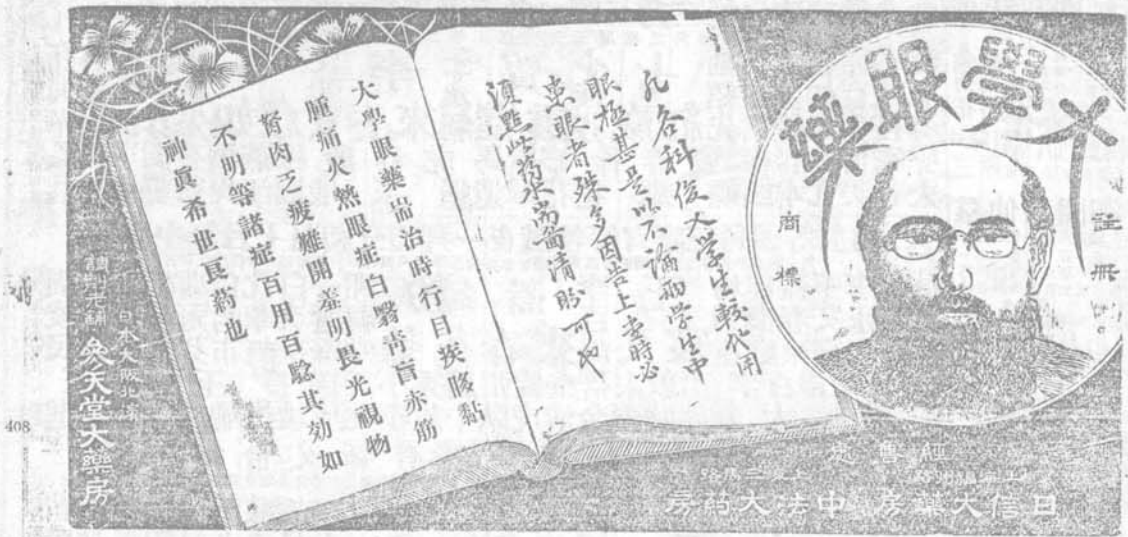 大學眼藥
註冊
商標
凡各科俊大學生較代用
眼極甚是以不論兩學生中
患眼者殊多因告上者時必
須點此葯水而當清明可也
大學眼藥耑治時行目疾眵黏
腫痛火熱眼症白翳青盲赤筋
胬肉乏疲難開羞明畏光視物
不明等諸症百用百驗其効如
神眞希世良葯也
日本大阪北濱
參天堂大藥房
經售處
日信大藥房
中法大葯房
408